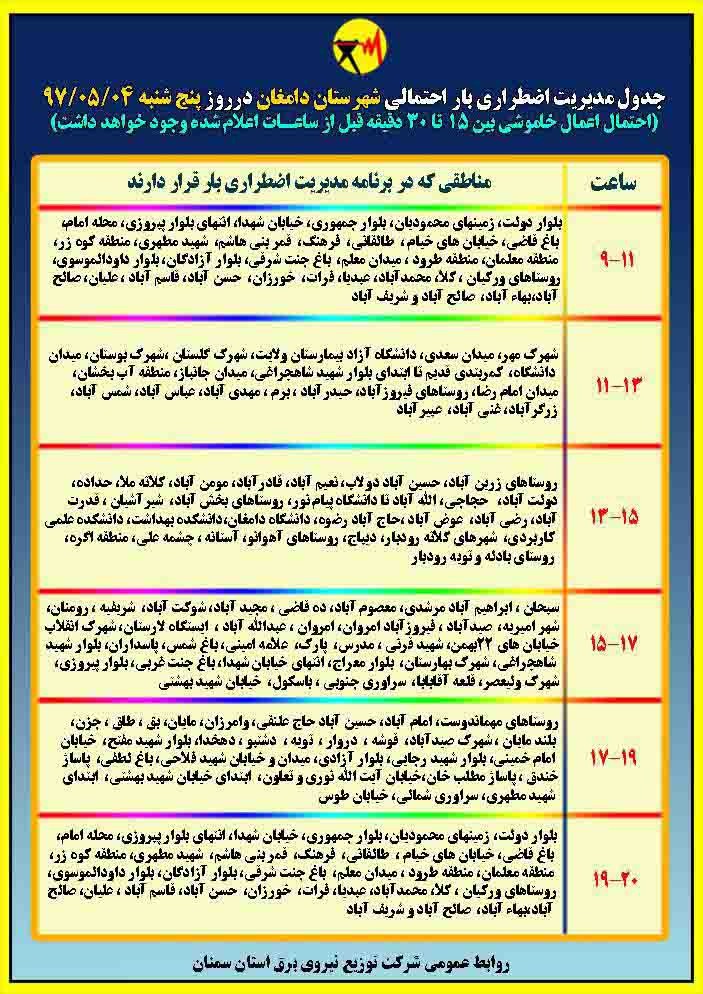 جدول مدیریت اضطراری بار احتمالی شهرستان دامغان درروز پنج شنبه ۹۷/۰۵/۰۴
(احتمال اعمال خاموشی بین ۱۵ تا ۳۰ دقیقه قبل از ساعات اعلام شده وجود خواهد داشت)
ساعت
مناطقی که در برنامه مدیریت اضطراری بار قرار دارند
۹-۱۱
بلوار دولت، زمینهای محمودیان، بلوار جمهوری، خیابان شهدا، انتهای بلوار پیروزی، محله امام،
باغ قاضی، خیابان های خیام ، طالقانی، فرهنگ، قمر بنی هاشم، شهید مطهری، منطقه کوه زر،
منطقه معلمان، منطقه طرود ، میدان معلم، باغ جنت شرقی، بلوار آزادگان، بلوار داودالموسوی،
روستاهای ورکیان ، کلا، محمدآباد، عبدیا، فرات، خورزان، حسن آباد، قاسم آباد ، علیان، صالح
آباد،بهاء آباد، صالح آباد و شریف آباد
۱۱-۱۳
شهرک مهر، میدان سعدی، دانشگاه آزاد بیمارستان ولایت، شهرک گلستان ،شهرک بوستان، میدان
دانشگاه، کمربندی قدیم تا ابتدای بلوار شهید شاهچراغی، میدان جانباز، منطقه آب بخشان،
میدان امام رضا، روستاهای فیروزآباد، حیدرآباد ، برم ، مهدی آباد، عباس آباد، شمس آباد،
زرگرآباد، غنی آباد، عبیرآباد
۱۳-۱۵
روستاهای زرین آباد، حسین آباد دولاب، نعیم آباد، قادرآباد، مومن آباد، کلاته ملا، حداده،
دولت آباد، حجاجی، الله آباد تا دانشگاه پیام نور، روستاهای بخش آباد، شیرآشیان ، قدرت
آباد، رضی آباد، عوض آباد ،حاج آباد رضوه، دانشگاه دامغان،دانشکده بهداشت، دانشکده علمی
کاربردی، شهرهای کلاته رودبار، دیباج، روستاهای آهوانو، آستانه ، چشمه علی، منطقه اکره،
روستای بادله و تویه رودبار
۱۵-۱۷
سبحان ، ابراهیم آباد مرشدی، معصوم آباد، ده قاضی ، مجید آباد، شوکت آباد، شریفیه ، رومنان،
شهر امیریه، صیدآباد ، فیروزآباد امروان، امروان ، عبدالله آباد ، ایستگاه لارستان،شهرک انقلاب
خیابان های ۲۲بهمن، شهید قرنی ، مدرس، پارک، علامه امینی، باغ شمس، پاسداران، بلوار شهید
شاهچراغی، شهرک بهارستان، بلوار معراج، انتهای خیابان شهدا، باغ جنت غربی، بلوار پیروزی،
شهرک ولیعصر، قلعه آقابابا، سراوری جنوبی ، باسکول، خیابان شهید بهشتی
۱۷-۱۹
روستاهای مهماندوست، امام آباد، حسین آباد حاج علینقی، وامرزان، مایان، بق ، طاق ، جزن،
بلند مایان ، شهرک صیدآباد، قوشه ، دروار ، تویه ، دشتبو ، دهخدا، بلوار شهید مفتح، خیابان
امام خمینی، بلوار شهید رجایی، بلوار آزادی، میدان و خیابان شهید فلاحی، باغ لطفی، پاساژ
خندق ، پاساژ مطلب خان،خیابان آیت الله نوری و تعاون، ابتدای خیابان شهید بهشتی، ابتدای
شهید مطهری، سراوری شمالی، خیابان طوس
۱۹-۲۰
بلوار دولت، زمینهای محمودیان، بلوار جمهوری، خیابان شهدا، انتهای بلوار پیروزی، محله امام،
باغ قاضی، خیابان های خیام ، طالقانی، فرهنگ، قمر بنی هاشم، شهید مطهری، منطقه کوه زر،
منطقه معلمان، منطقه طرود ، میدان معلم، باغ جنت شرقی، بلوار آزادگان، بلوار داودالموسوی،
روستاهای ورکیان ، کلا، محمدآباد، عبدیا، فرات، خورزان، حسن آباد، قاسم آباد ، علیان، صالح
آباد،بهاء آباد، صالح آباد و شریف آباد
روابط عمومی شرکت توزیع نیروی برق استان سمنان